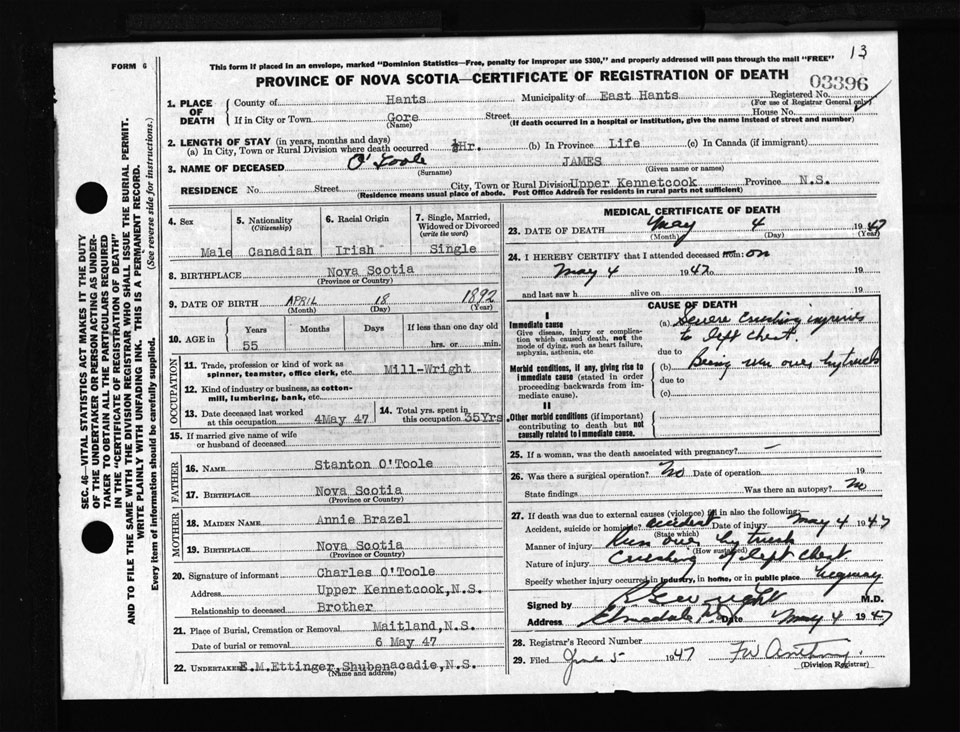 13
FORM 6
This form if placed in an envelope, marked "Dominion Statistics—Free, penalty for improper use $300," and properly addressed will pass through the mail "FREE"
PROVINCE OF NOVA SCOTIA—CERTIFICATE OF REGISTRATION OF DEATH
03396
1. PLACE OF DEATH
County of Hants Municipality of East Hants Registered No.
(For use of Registrar General only)
If in City or Town Gore Street House No.
(Name) (If death occurred in a hospital or institution, give the name instead of street and number)
2. LENGTH OF STAY (in years, months and days)
(a) In City, Town or Rural Division where death occurred ½Hr. (b) In Province Life (c) In Canada (if immigrant)
3. NAME OF DECEASED O'Toole JAMES
(Surname) (Given name or names)
RESIDENCE No. Street City, Town or Rural Division Upper Kennetcook Province N.S.
(Residence means usual place of abode. Post Office Address for residents in rural parts not sufficient)
4. Sex
Male
5. Nationality
(Citizenship)
Canadian
6. Racial Origin
Irish
7. Single, Married, Widowed or Divorced
(write the word)
Single
8. BIRTHPLACE Nova Scotia
(Province or Country)
9. DATE OF BIRTH APRIL 18 1892
(Month) (Day) (Year)
10. AGE in
Years Months Days If less than one day old
55 hrs. or min.
OCCUPATION
11. Trade, profession or kind of work as spinner, teamster, office clerk, etc. Mill-Wright
12. Kind of industry or business, as cotton-mill, lumbering, bank, etc.
13. Date deceased last worked at this occupation 4May 47
14. Total yrs. spent in this occupation 35Yrs
15. If married give name of wife or husband of deceased
FATHER
16. NAME Stanton O'Toole
17. BIRTHPLACE Nova Scotia
(Province or Country)
MOTHER
18. MAIDEN NAME Annie Brazel
19. BIRTHPLACE Nova Scotia
(Province or Country)
20. Signature of informant Charles O'Toole
Address Upper Kennetcook, N.S.
Relationship to deceased Brother
21. Place of Burial, Cremation or Removal Maitland, N.S.
Date of burial or removal 6 May 47
22. UNDERTAKER E.M.Ettinger, Shubenacadie, N.S.
(Name and address)
MEDICAL CERTIFICATE OF DEATH
23. DATE OF DEATH May 4 1947
(Month) (Day) (Year)
24. I HEREBY CERTIFY that I attended deceased from: on
May 4 1947 to 19
and last saw h alive on 19
CAUSE OF DEATH
I
Immediate cause
Give disease, injury or complication which caused death, not the mode of dying, such as heart failure, asphyxia, asthenia, etc
(a) Severe crushing injuries
to left chest.
due to
Morbid conditions, if any, giving rise to immediate cause (stated in order proceeding backwards from immediate cause).
(b) Being run over by truck
due to
(c)
II
Other morbid conditions (if important) contributing to death but not causally related to immediate cause.
25. If a woman, was the death associated with pregnancy? —
26. Was there a surgical operation? No Date of operation 19
State findings Was there an autopsy? No
27. If death was due to external causes (violence) fill in also the following:
Accident, suicide or homicide? accident Date of injury May 4 1947
(State which)
Manner of injury Run over by truck
(How sustained)
Nature of injury Crushing of left chest
Specify whether injury occurred in industry, in home, or in public place highway
Signed by M.D.
Address Date May 4 1947
28. Registrar's Record Number
29. Filed 5 1947
(Division Registrar)
SEC. 46—VITAL STATISTICS ACT MAKES IT THE DUTY
OF THE UNDERTAKER OR PERSON ACTING AS UNDER-
TAKER TO OBTAIN ALL THE PARTICULARS REQUIRED
IN THE "CERTIFICATE OF REGISTRATION OF DEATH"
AND TO FILE THE SAME WITH THE DIVISION REGISTRAR WHO SHALL ISSUE THE BURIAL PERMIT.
WRITE PLAINLY WITH UNFADING INK. THIS IS A PERMANENT RECORD.
Every item of information should be carefully supplied. (See reverse side for instructions.)